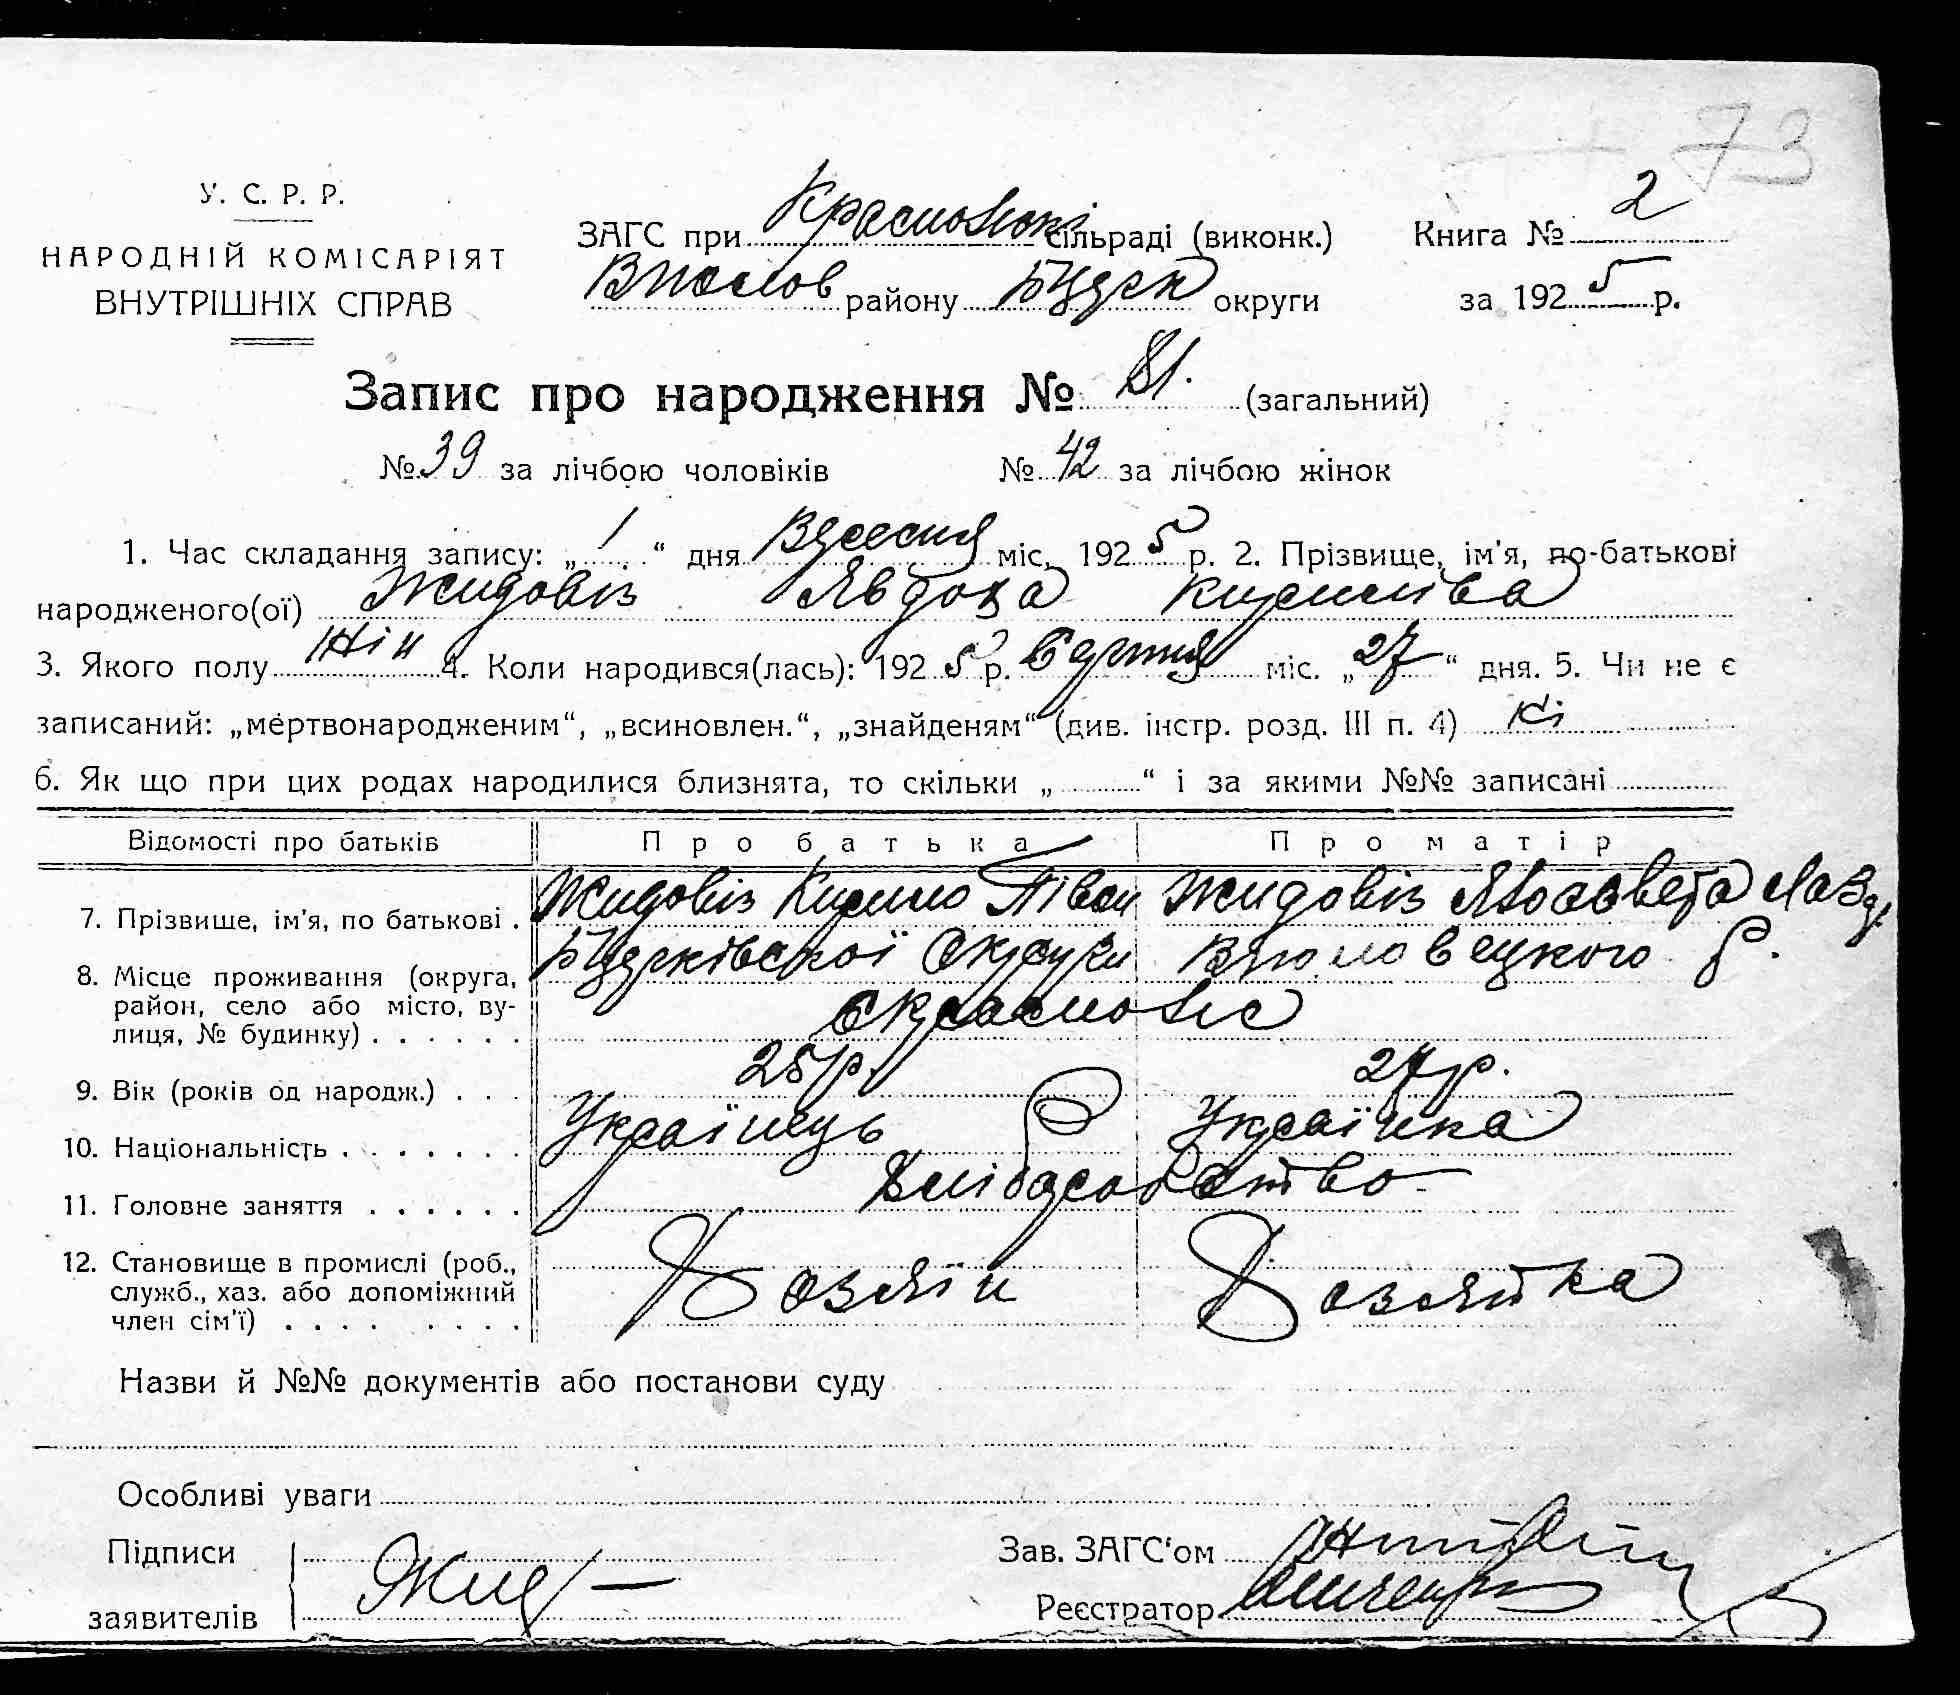 73
У. С. Р. Р.
НАРОДНІЙ КОМІСАРІЯТ
ВНУТРІШНІХ СПРАВ
ЗАГС при сільраді (виконк.) Книга № 2
району округи за 1925 р.
Запис про народження № 81. (загальний)
№ 39 за лічбою чоловіків № 42 за лічбою жінок
1. Час складання запису: „1“ дня Вересня міс. 1925 р. 2. Прізвище, ім'я, по-батькові
народженого(ої) Жидовіз Явдоха Кирилова
3. Якого полу Жін 4. Коли народився(лась): 1925 р. Серпня міс. „27“ дня. 5. Чи не є
записаний: „мертвонародженим“, „всиновлен.“, „знайденям“ (див. інстр. розд. III п. 4) Ні
6. Як що при цих родах народилися близнята, то скільки „ “ і за якими №№ записані
Відомості про батьків Про батька Про матір
7. Прізвище, ім'я, по батькові . Жидовіз Кирило Жидовіз
8. Місце проживання (округа, район, село або місто, вулиця, № будинку) . . . . . . Округи р.
9. Вік (років од народж.) . . . 25 р. 27 р.
10. Національність . . . . . . . Українець Українка
11. Головне заняття . . . . . . Хліборобство
12. Становище в промислі (роб., служб., хаз. або допоміжний член сім'ї) . . . . . . . . Хозяїн Хозяйка
Назви й №№ документів або постанови суду
Особливі уваги
Підписи заявителів Жид
Зав. ЗАГС'ом
Реєстратор